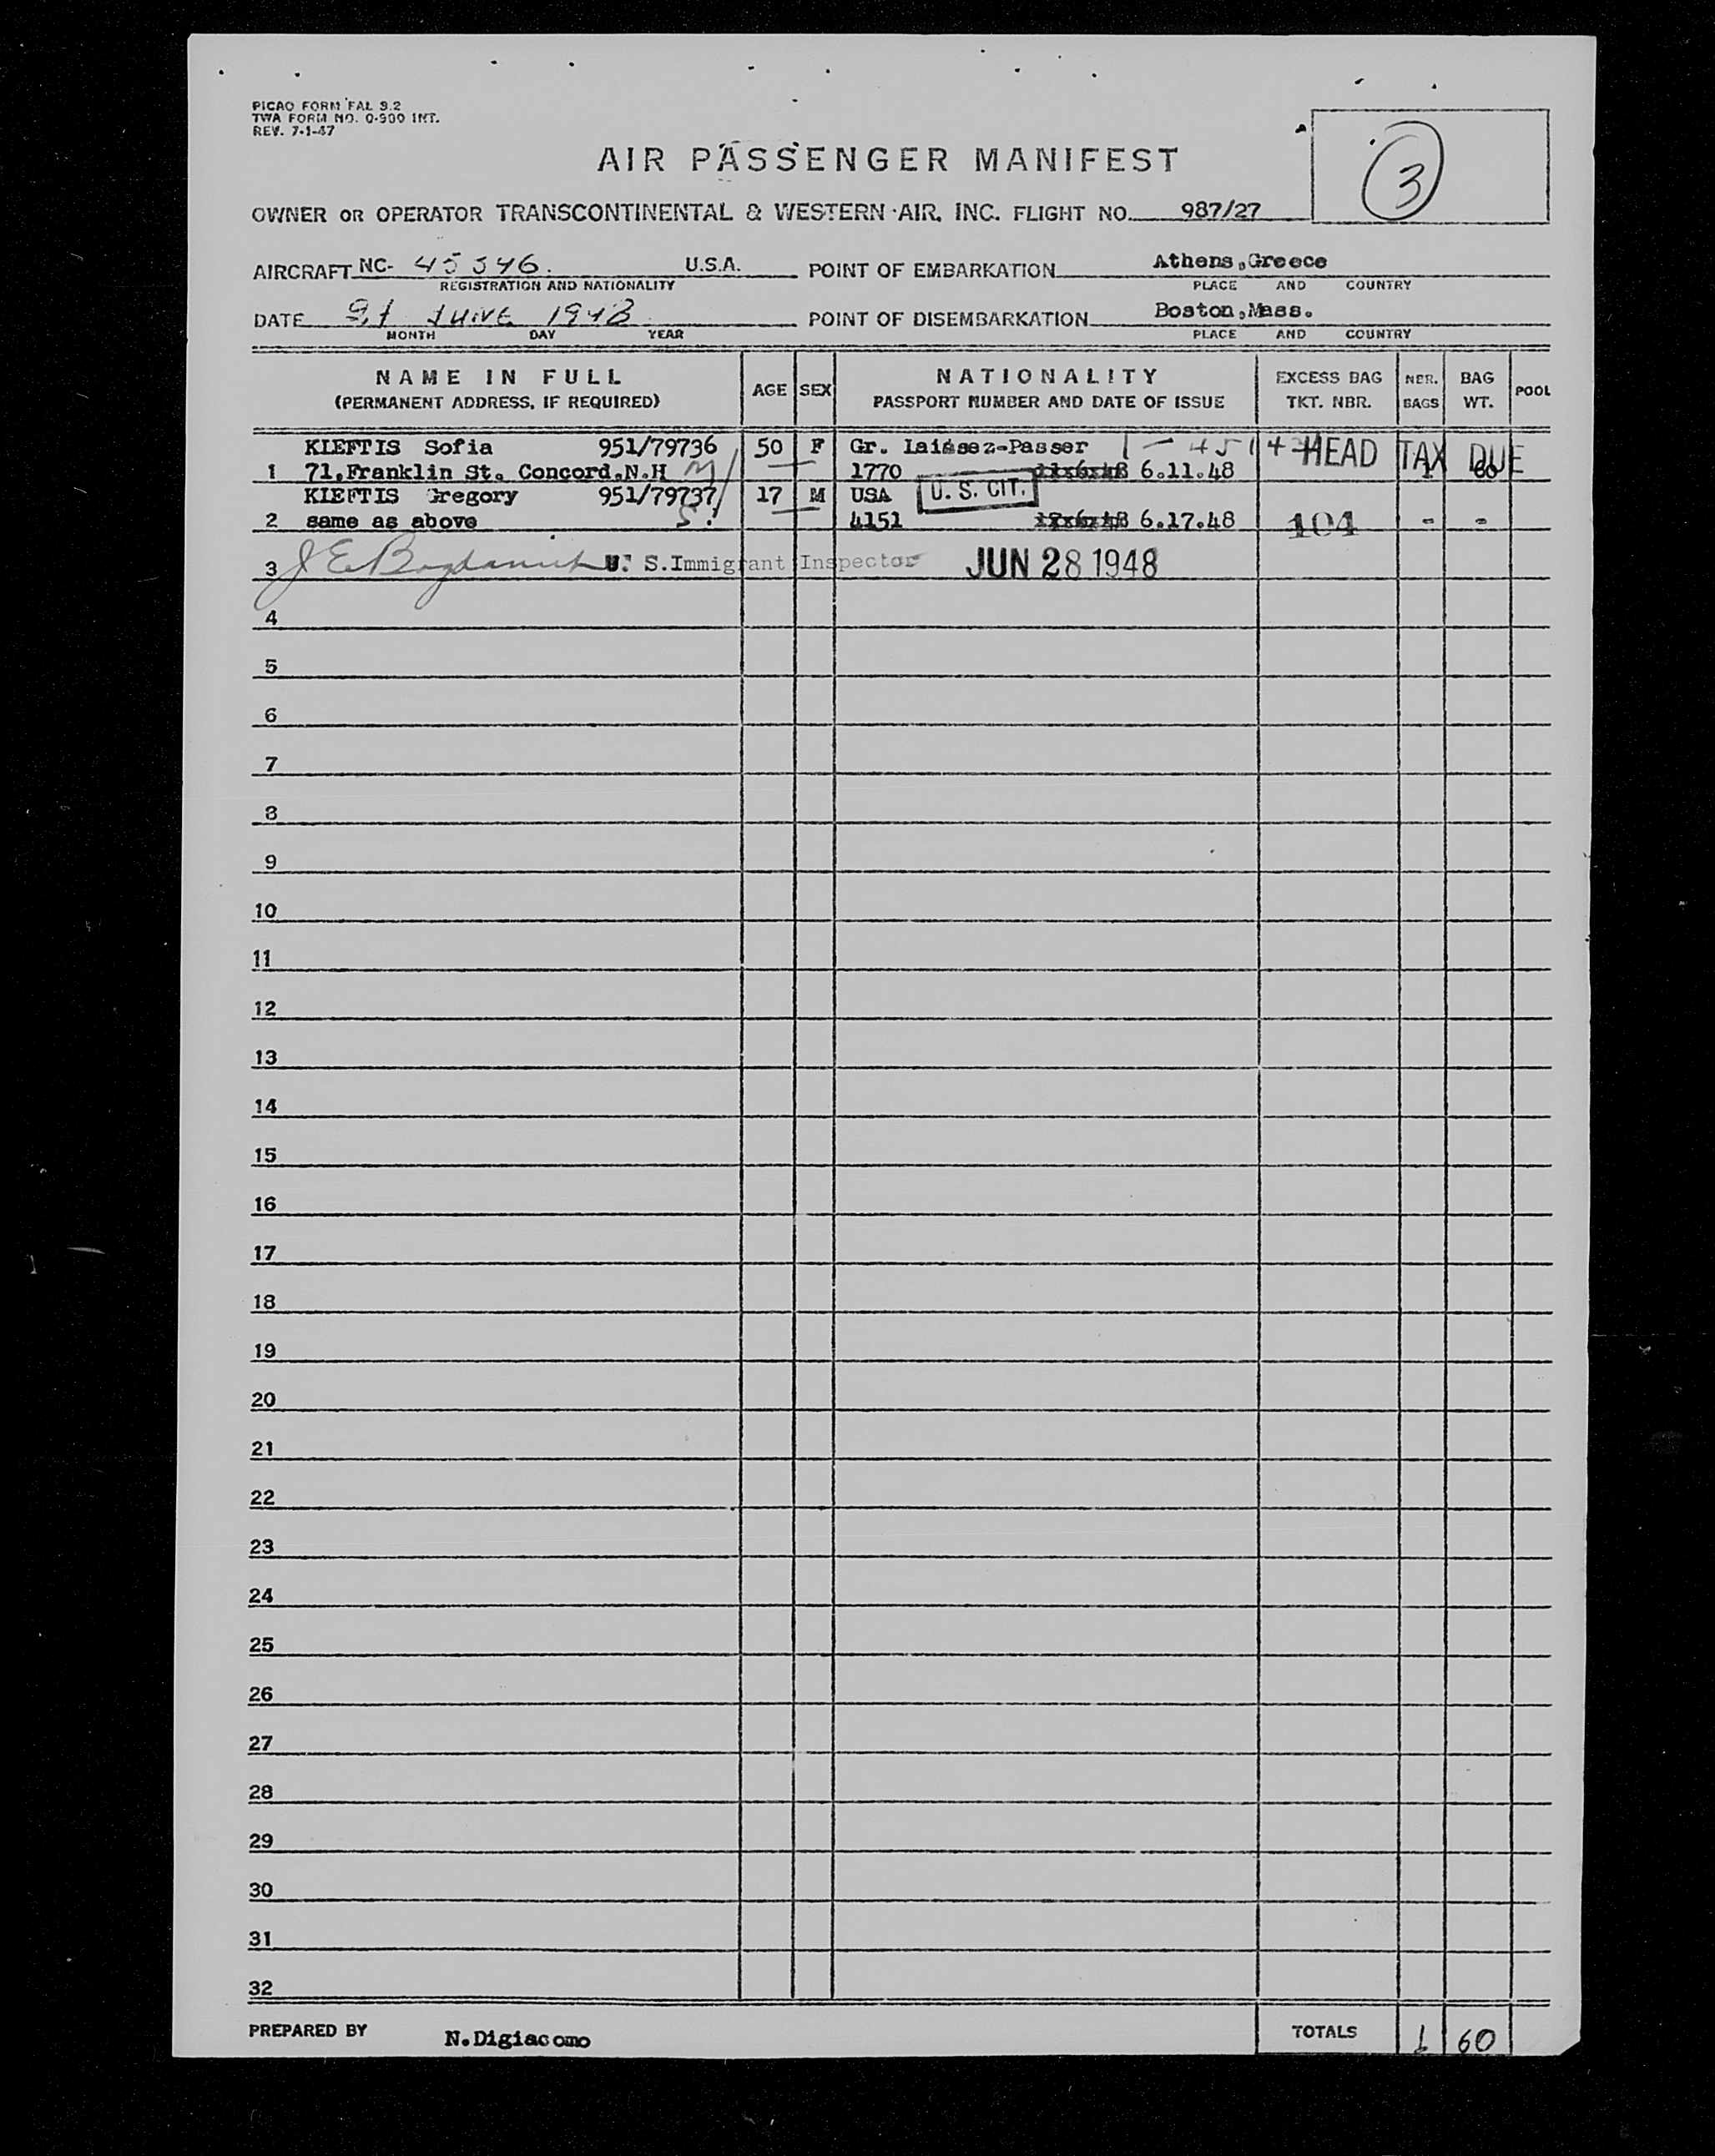 PICAO FORM FAL 9.2
TWA FORM NO. O-900 INT.
REV. 7-1-47
3
AIR PASSENGER MANIFEST
OWNER OR OPERATOR TRANSCONTINENTAL & WESTERN AIR, INC. FLIGHT NO. 987/27
AIRCRAFT NC- 45346. U.S.A. POINT OF EMBARKATION Athens,Greece
REGISTRATION AND NATIONALITY PLACE AND COUNTRY
DATE JUNE 1948 POINT OF DISEMBARKATION Boston,Mass.
MONTH DAY YEAR PLACE AND COUNTRY
NAME IN FULL AGE SEX NATIONALITY EXCESS BAG NBR. BAG POOL
(PERMANENT ADDRESS, IF REQUIRED) PASSPORT NUMBER AND DATE OF ISSUE TKT. NBR. BAGS WT.
KLEFTIS Sofia 951/79736 50 F Gr. Laissez-Passer HEAD TAX DUE
1 71,Franklin St. Concord,N.H 1770 6.11.48 1 60
KLEFTIS Gregory 951/79737 17 M USA U. S. CIT.
2 same as above 4151 6.17.48 104 - -
3 U. S.Immigrant Inspector JUN 28 1948
4
5
6
7
8
9
10
11
12
13
14
15
16
17
18
19
20
21
22
23
24
25
26
27
28
29
30
31
32
PREPARED BY N.Digiacomo TOTALS 1 60